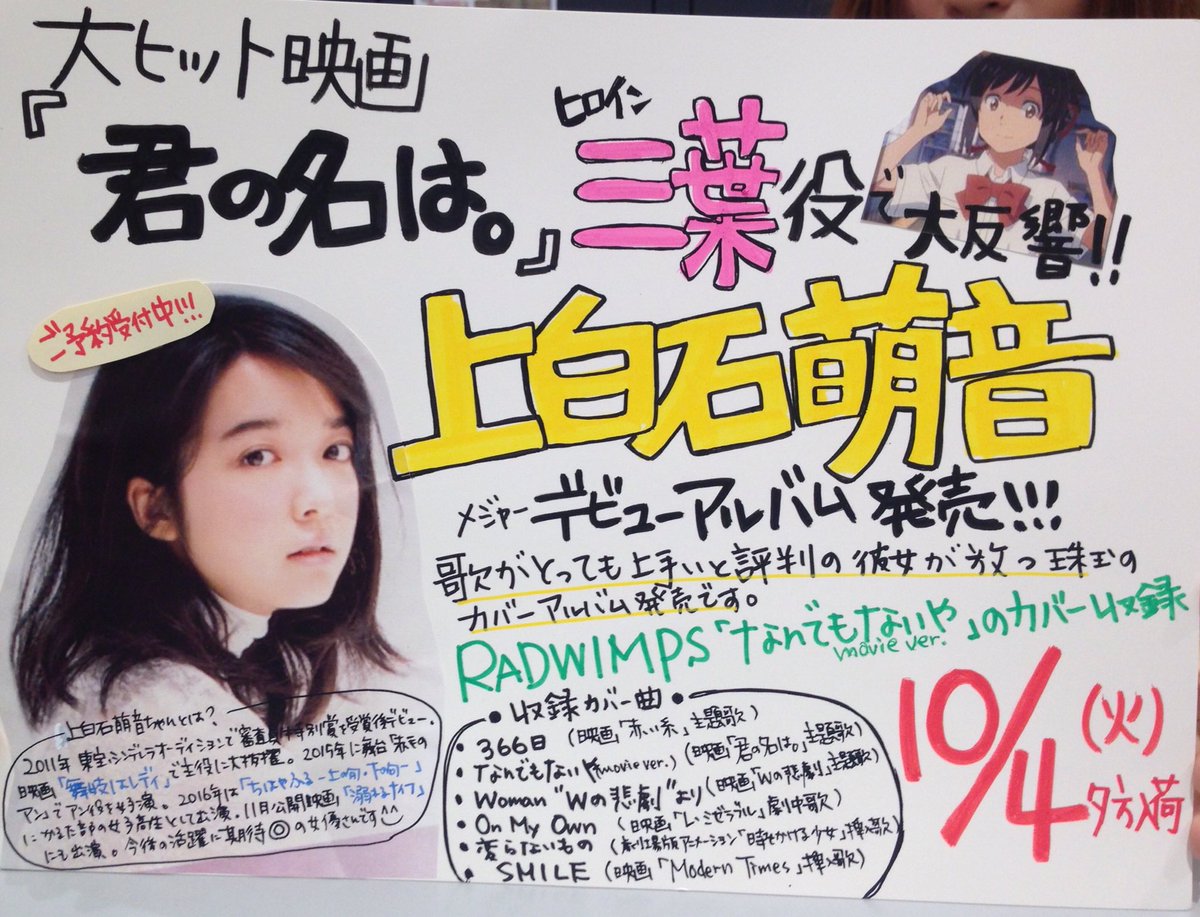 大ヒット映画
『君の名は。』
ヒロイン
三葉役で大反響!!
ご予約受付中!!!
上白石萌音
メジャーデビューアルバム発売!!!
歌がとっても上手いと評判の彼女が放つ珠玉の
カバーアルバム発売です。
RADWIMPS「なんでもないや」のカバー収録
movie ver.
10/4(火)
夕方入荷
・収録カバー曲・
・366日 (映画「赤い糸」主題歌)
・なんでもないや(movie ver.) (映画「君の名は。」主題歌)
・Woman "Wの悲劇"より (映画「Wの悲劇」主題歌)
・On My Own (映画「レ・ミゼラブル」劇中歌)
・変らないもの (劇場版アニメーション「時をかける少女」挿入歌)
・SMILE (映画「Modern Times」挿入歌)
上白石萌音ちゃんとは?
2011年 東宝シンデレラオーディションで審査員特別賞を受賞後デビュー。
映画「舞妓はレディ」で主役に大抜擢。2015年に舞台「赤毛の
アン」でアン役を好演。2016年は「ちはやふる-上の句・下の句-」
にかるた部の女子高生として出演。11月公開映画「溺れるナイフ」
にも出演。今後の活躍に期待◎の女優さんです^^